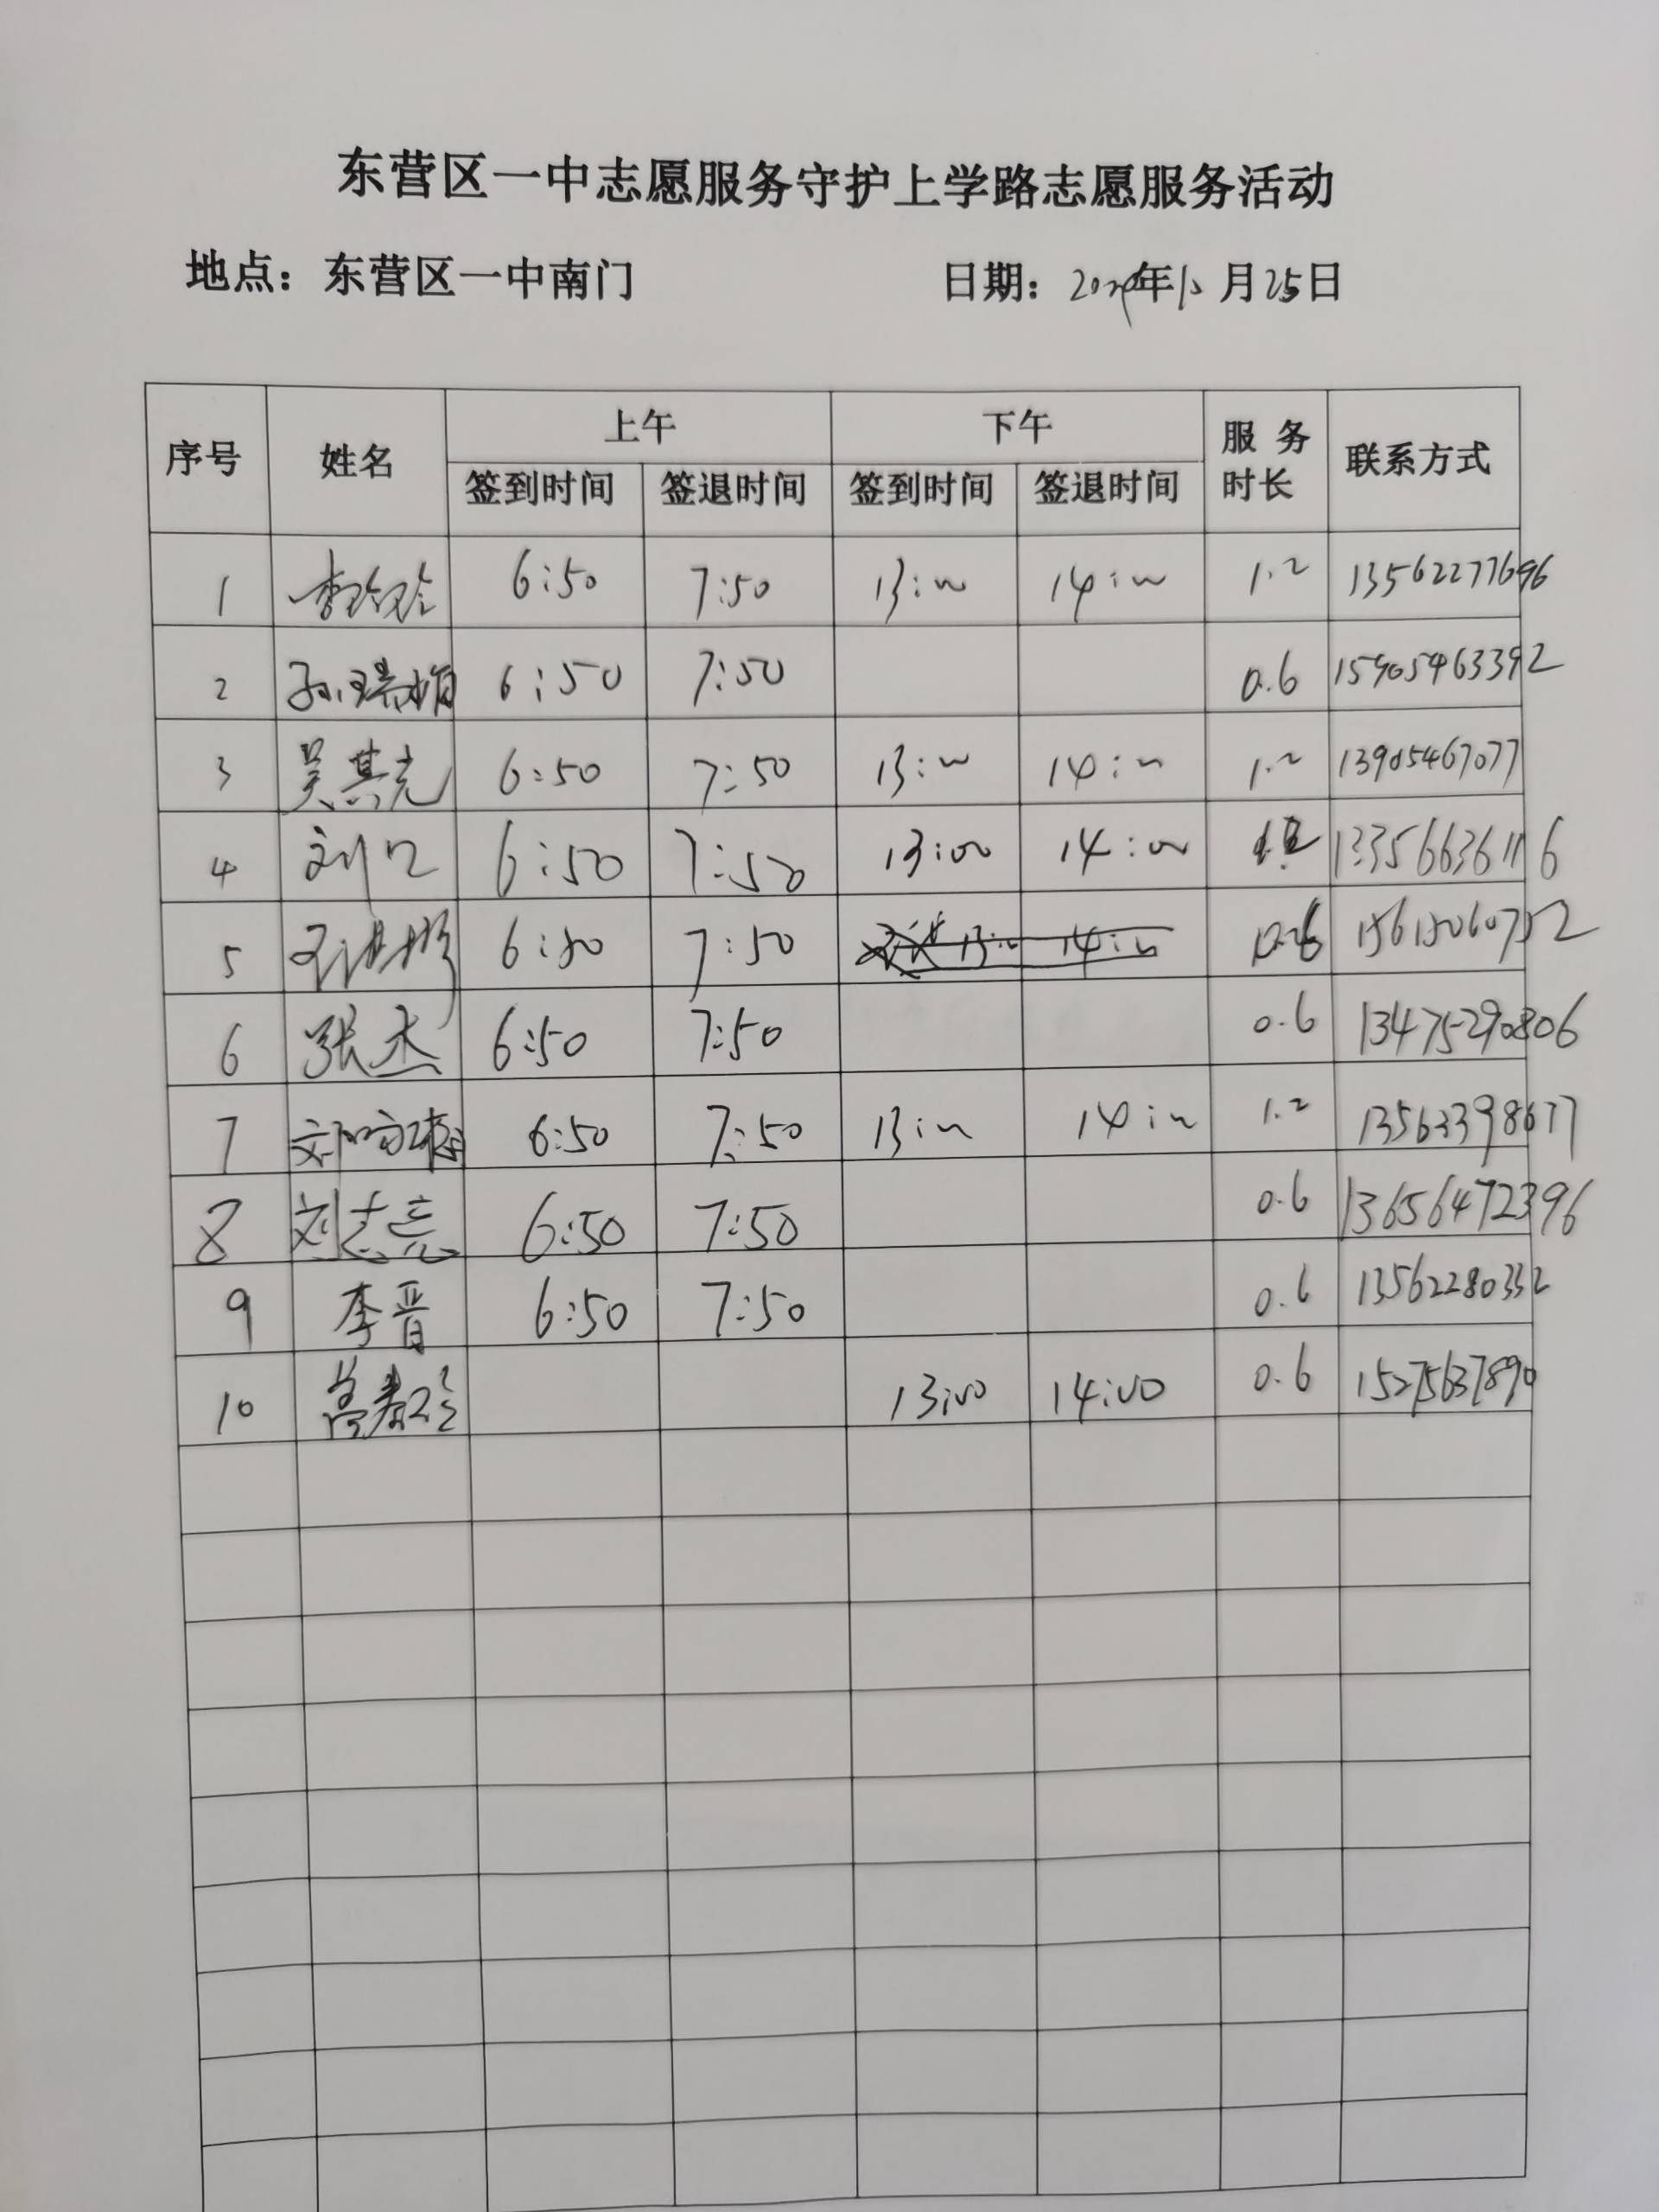 东营区一中志愿服务守护上学路志愿服务活动
地点：东营区一中南门 日期： 年 月25日
序号 姓名 上午 下午 服务时长 联系方式
签到时间 签退时间 签到时间 签退时间
1 6:50 7:50 13:00 14:00 1.2 13562277696
2 孙瑞梅 6:50 7:50 0.6 15905463392
3 吴其克 6:50 7:50 13:00 14:00 1.2 13905467077
4 6:50 7:50 13:00 14:00 13356636116
5 6:50 7:50 0.6 15615060752
6 张杰 6:50 7:50 0.6 13475290806
7 6:50 7:50 13:00 14:00 1.2 13563398677
8 刘志亮 6:50 7:50 0.6 13656472396
9 李晋 6:50 7:50 0.6 13562280332
10 13:00 14:00 0.6 15275637890